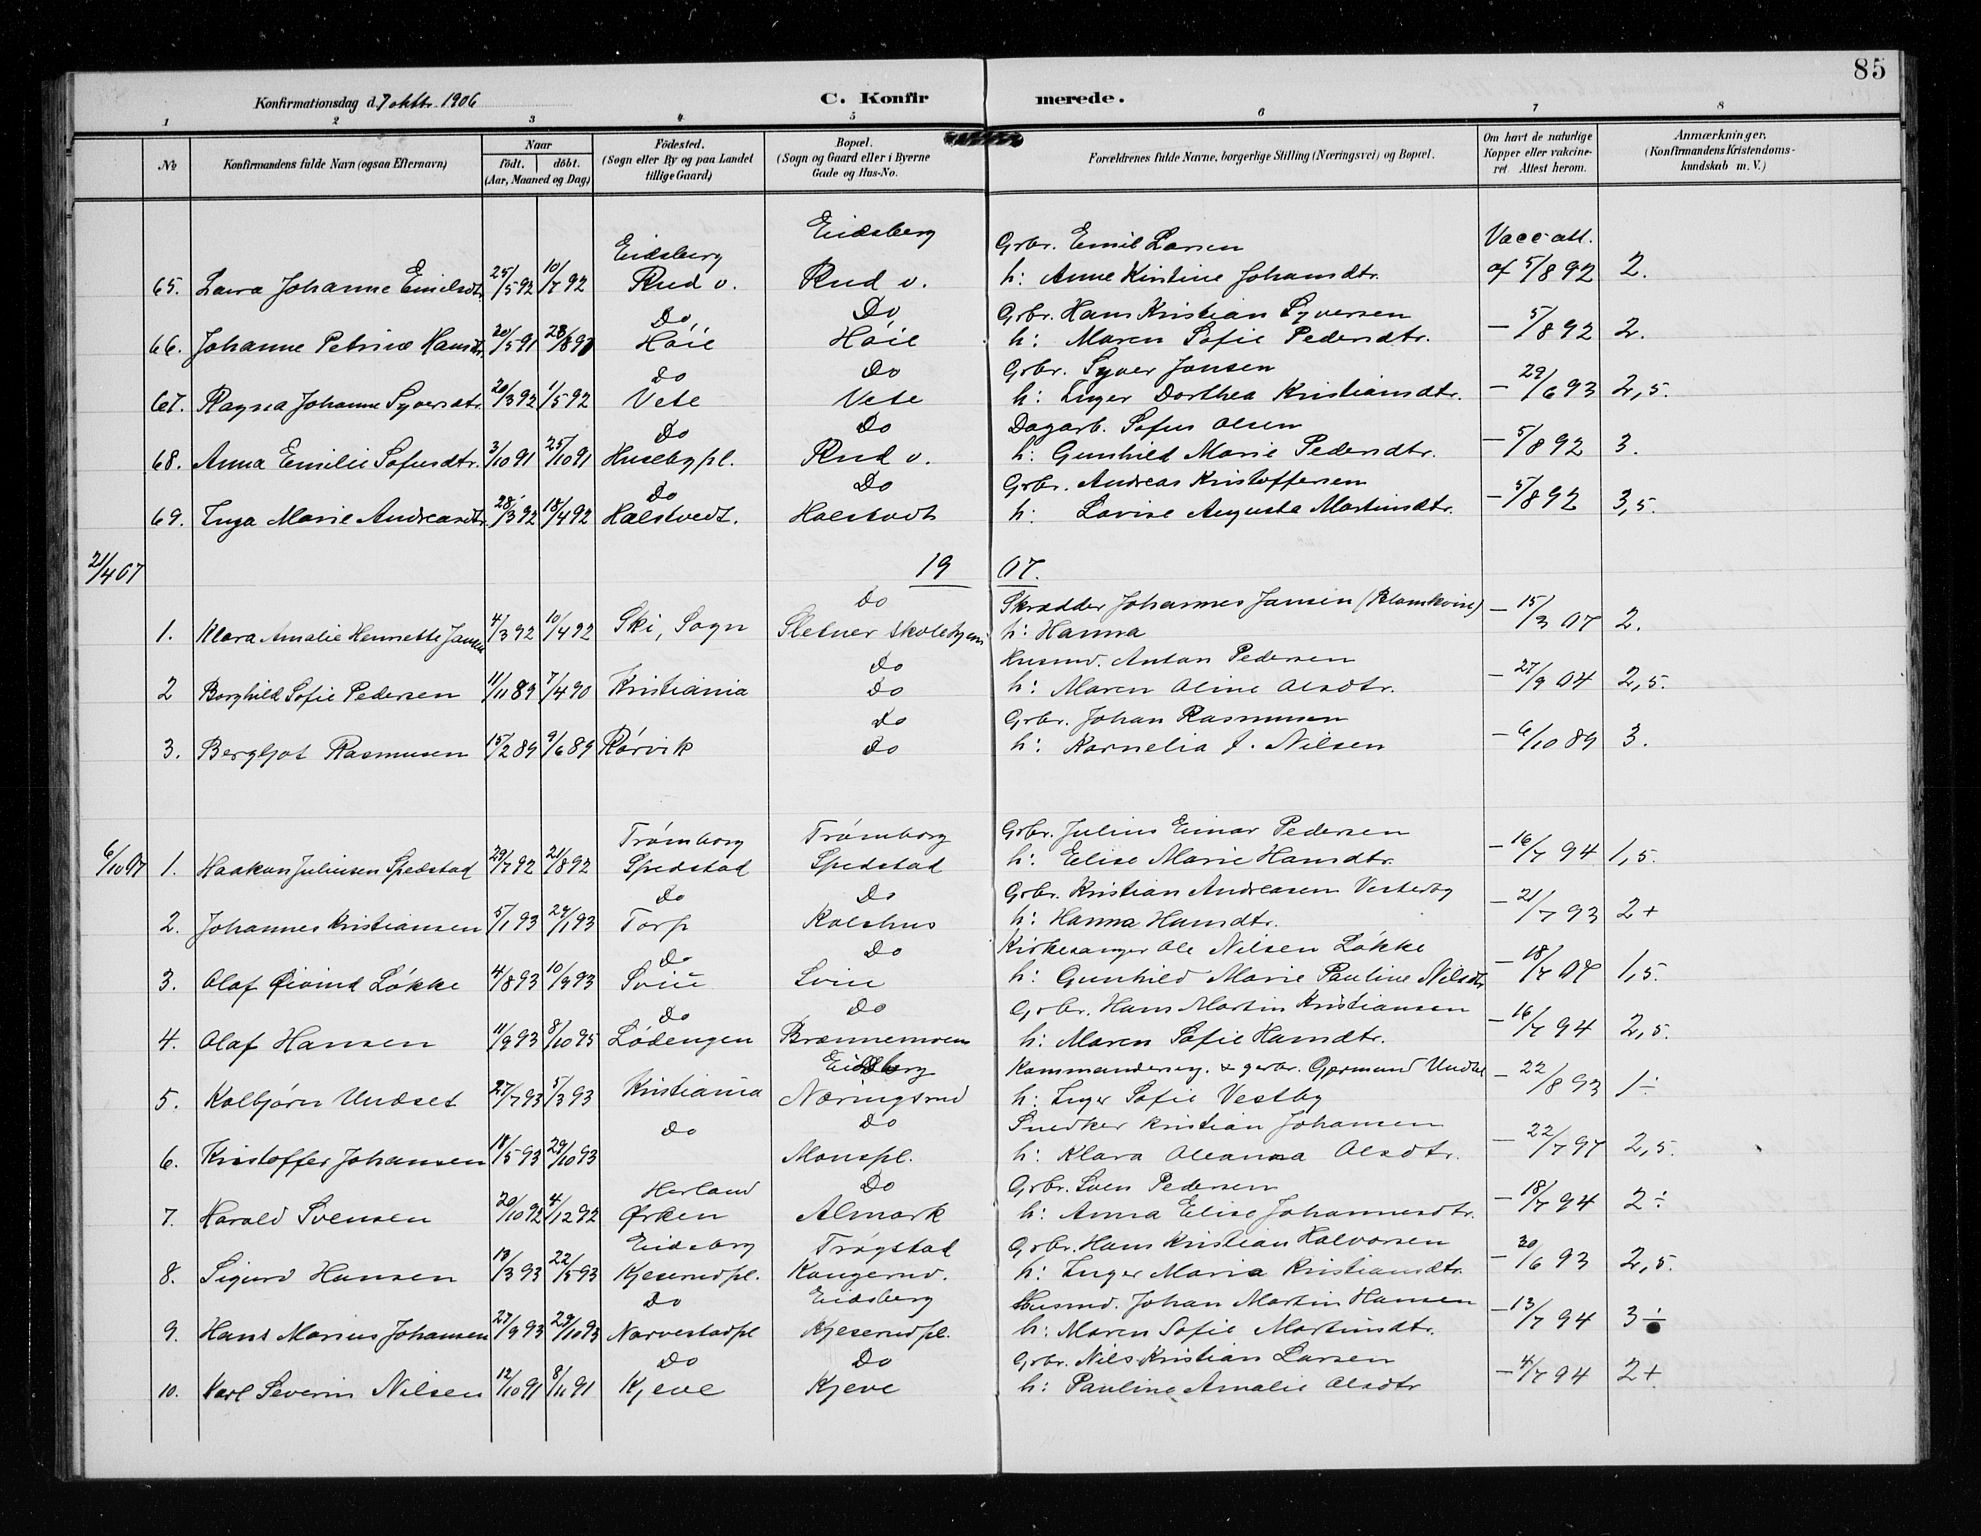 85
Konfirmationsdag d. 7 oktbr. 1906 C. Konfirmerede.
1 2 3 4 5 6 7 8
No Konfirmandens fulde Navn (ogsaa Efternavn) Naar födt. döbt. (Aar, Maaned og Dag) Födested. (Sogn eller By og paa Landet tillige Gaard) Bopæl. (Sogn og Gaard eller i Byerne Gade og Hus-No. Forældrenes fulde Navne, borgerlige Stilling (Næringsvei) og Bopæl. Om havt de naturlige Kopper eller vakcineret Attest herom. Anmærkninger. (Konfirmandens Kristendomskundskab m. V.)
Eidsberg Eidsberg Grbr. Emil Larsen Vacc. att.
65. Laura Johanne Emilsdtr. 25/5 92 10/7 92 Rud v. Rud v. h: Anne Kirstine Johansdtr. af 5/8 92 2.
Do Do Grbr. Hans Kristian Syversen
66. Johanne Petrine Hansdtr. 20/5 91 28/8 91 Höie Höie h: Maren Sofie Pedersdtr. — 5/8 92 2.
Do Do Grbr. Syver Jansen
67. Ragna Johanne Syversdtr. 20/3 92 1/5 92 Vete Vete h: Inger Dorthea Kristiansdtr. — 29/6 93 2,5.
Do Do Dagarb. Sofus Olsen
68. Anna Emilie Sofusdtr. 3/10 91 25/10 91 Husebypl. Rud v. h: Gunhild Marie Pedersdtr. — 5/8 92 3.
Do Do Grbr. Andreas Kristoffersen
69. Inga Marie Andreasdtr. 28/3 92 18/4 92 Halstvedt. Halstvedt h: Lovise Augusta Martinsdtr. — 5/8 92 3,5.
21/4 07 19 07.
Do Skrædder Johannes Jansen
1. Klara Amalie Henriette Jansen 4/3 92 10/4 92 Ski, Sogn Sletner skolehjem h: Hanna — 15/3 07 2.
Do Husmd. Anton Pedersen
2 Borghild Sofie Pedersen 11/11 89 7/4 90 Kristiania Do h: Maren Oline Olsdtr. — 27/9 04 2,5.
Do Grbr. Johan Rasmusen
3. Bergljot Rasmusen 15/2 89 9/6 89 Rörvik Do h: Kornelia J. Nilsen — 6/10 89 3.
Trömborg Trömborg Grbr. Julius Einar Pedersen
6/10 07 1. Haakon Juliusen Spedstad 29/7 92 21/8 92 Spedstad Spedstad h: Elise Marie Hansdtr. — 16/7 94 1,5.
Do Do Grbr. Kristian Andreasen Vesterby
2. Johannes Kristiansen 5/1 93 29/1 93 Torp Kolshus h: Hanna Hansdtr. — 21/7 93 2+
Do Do Kirkesanger Ole Nilsen Løkke
3. Olaf Øivind Løkke 4/8 93 10/9 93 Svin Svin h: Gunhild Marie Pauline Nilsdtr. — 18/7 07 1,5.
Do Do Grbr. Hans Martin Kristiansen
4. Olaf Hansen 11/9 93 8/10 95 Lödengen Brænnemoen h: Maren Sofie Hansdtr. — 16/7 94 2,5.
Eidsberg Kommandersrg. & grbr. Gjermund Undset
5. Kolbjörn Undset 27/7 93 5/3 93 Kristiania Næringsrud h: Inger Sofie Vestby — 22/8 93 1÷
Do Do Snedker Kristian Johansen
6. Kristoffer Johansen 18/5 93 29/10 93 Monspl. h: Klara Oleanna Olsdtr. — 22/7 97 2,5.
Herland Do Grbr. Sven Pedersen
7. Harald Svensen 20/10 92 4/12 92 Ørken Almark h: Anna Elise Johannesdtr. — 18/7 94 2÷
Eidsberg Trögstad Grbr. Hans Kristian Halvorsen
8. Sigurd Hansen 13/3 93 22/5 93 Kjeserudpl. Kangerud. h: Inger Maria Kristiansdtr. — 30/6 93 2,5.
Do Eidsberg Husmd. Johan Martin Hansen
9. Hans Marius Johansen 23/9 93 29/10 93 Narvestadpl Kjeserudpl. h: Maren Sofie Martinsdtr. — 13/7 94 3÷
Do Do Grbr. Nils Kristian Larsen
10. Karl Severin Nilsen 12/10 91 8/11 91 Kjeve Kjeve h: Pauline Amalie Olsdtr — 4/7 94 2+.